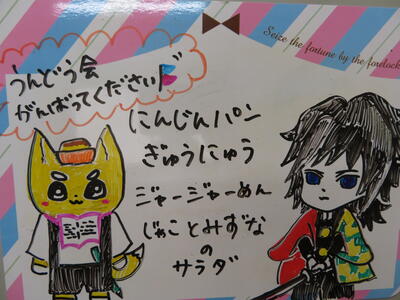 Seize the fortune by the forelock
うんどう会
がんばってください
にんじんパン
ぎゅうにゅう
ジャージャーめん
じゃことみずな
の
サラダ